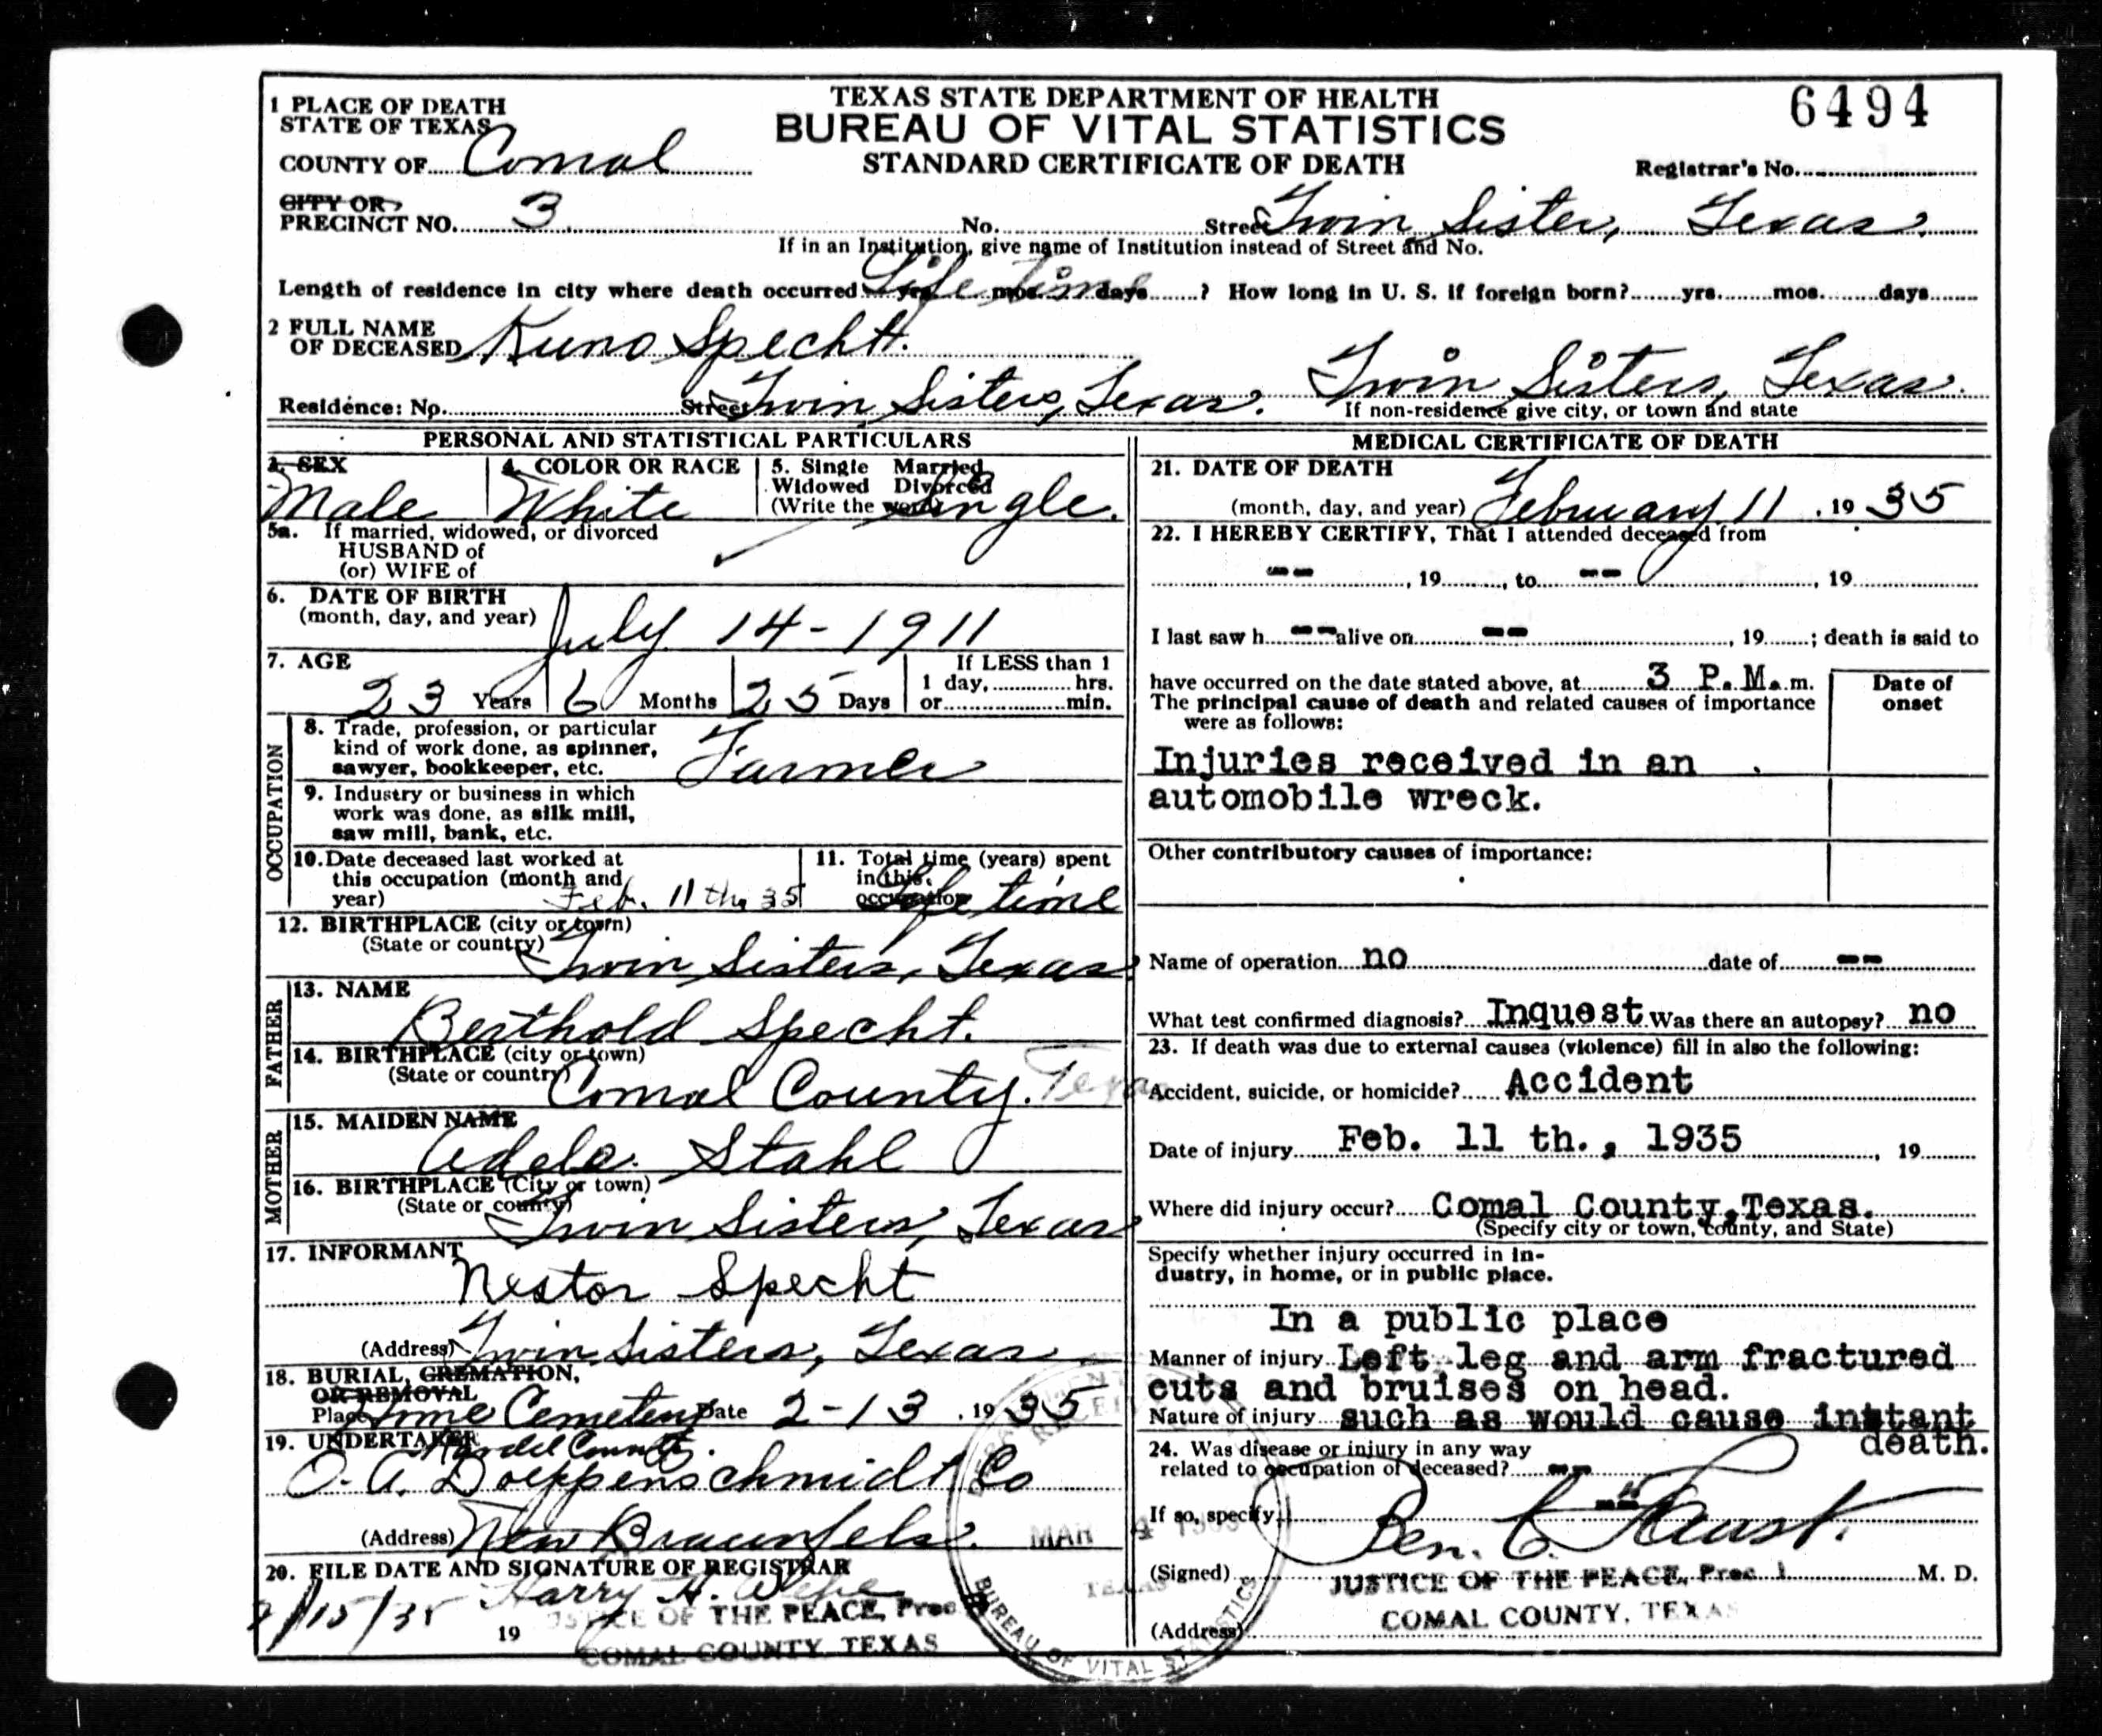 TEXAS STATE DEPARTMENT OF HEALTH
BUREAU OF VITAL STATISTICS
STANDARD CERTIFICATE OF DEATH
6494
Registrar's No.
1 PLACE OF DEATH
STATE OF TEXAS
COUNTY OF Comal
CITY OR
PRECINCT NO. 3 No. Street Twin Sister, Texas.
If in an Institution, give name of Institution instead of Street and No.
Length of residence in city where death occurred Life Time yrs. mos. days ? How long in U. S. if foreign born? yrs. mos. days
2 FULL NAME
OF DECEASED Kuno Specht.
Residence: No. Street Twin Sisters, Texas. Twin Sisters, Texas.
If non-residence give city, or town and state
PERSONAL AND STATISTICAL PARTICULARS
3. SEX Male
4. COLOR OR RACE White
5. Single Married
Widowed Divorced
(Write the word) Single.
5a. If married, widowed, or divorced
HUSBAND of
(or) WIFE of
6. DATE OF BIRTH
(month, day, and year) July 14-1911
7. AGE
23 Years 6 Months 25 Days
If LESS than 1
1 day, hrs.
or min.
OCCUPATION
8. Trade, profession, or particular
kind of work done, as spinner,
sawyer, bookkeeper, etc. Farmer
9. Industry or business in which
work was done, as silk mill,
saw mill, bank, etc.
10. Date deceased last worked at
this occupation (month and
year) Feb. 11 th. 35
11. Total time (years) spent
in this
occupation Life time
12. BIRTHPLACE (city or town)
(State or country) Twin Sisters, Texas
FATHER
13. NAME
Berthold Specht.
14. BIRTHPLACE (city or town)
(State or country) Comal County. Texas
MOTHER
15. MAIDEN NAME
Adele Stahl
16. BIRTHPLACE (City or town)
(State or county) Twin Sisters, Texas
17. INFORMANT
Nestor Specht
(Address) Twin Sisters, Texas
18. BURIAL, CREMATION,
OR REMOVAL
Place Home Cemetery Date 2-13, 1935
19. UNDERTAKER
O. A. Doeppenschmidt Co
(Address) New Braunfels.
20. FILE DATE AND SIGNATURE OF REGISTRAR
2/15/35 Harry H.
19
JUSTICE OF THE PEACE, Prec
COMAL COUNTY, TEXAS
MEDICAL CERTIFICATE OF DEATH
21. DATE OF DEATH
(month, day, and year) February 11, 1935
22. I HEREBY CERTIFY, That I attended deceased from
--, 19 , to --, 19
I last saw h -- alive on --, 19 ; death is said to
have occurred on the date stated above, at 3 P.M. m.
The principal cause of death and related causes of importance
were as follows:
Date of
onset
Injuries received in an
automobile wreck.
Other contributory causes of importance:
Name of operation no date of --
What test confirmed diagnosis? Inquest Was there an autopsy? no
23. If death was due to external causes (violence) fill in also the following:
Accident, suicide, or homicide? Accident
Date of injury Feb. 11 th., 1935, 19
Where did injury occur? Comal County, Texas.
(Specify city or town, county, and State)
Specify whether injury occurred in in-
dustry, in home, or in public place.
In a public place
Manner of injury Left leg and arm fractured
cuts and bruises on head.
Nature of injury such as would cause instant
death.
24. Was disease or injury in any way
related to occupation of deceased? --
If so, specify --
(Signed) Ben. C. Faust. M. D.
JUSTICE OF THE PEACE, Prec. 1
COMAL COUNTY, TEXAS
(Address)
RECEIVED
MAR
TEXAS
BUREAU OF VITAL STATISTICS